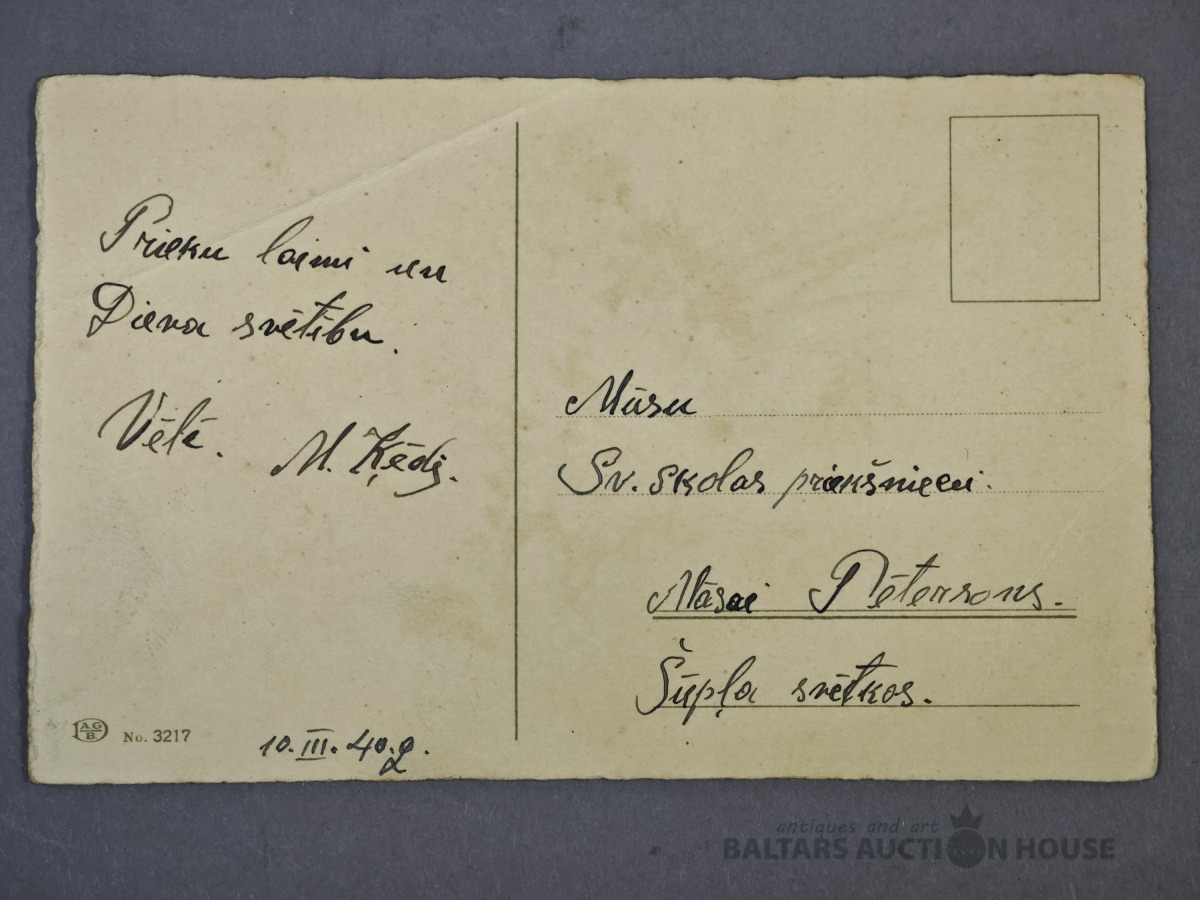 Prieku laimi un
Dieva svētību.
Vēlē. M. Ķēdj.
AG
B.
No. 3217
10. III. 40.g.
Mūsu
Sv. skolas priekšniecei.
Māsai Pētersons.
Šūpļa svētkos.
antiques and art
BALTARS AUCTION HOUSE